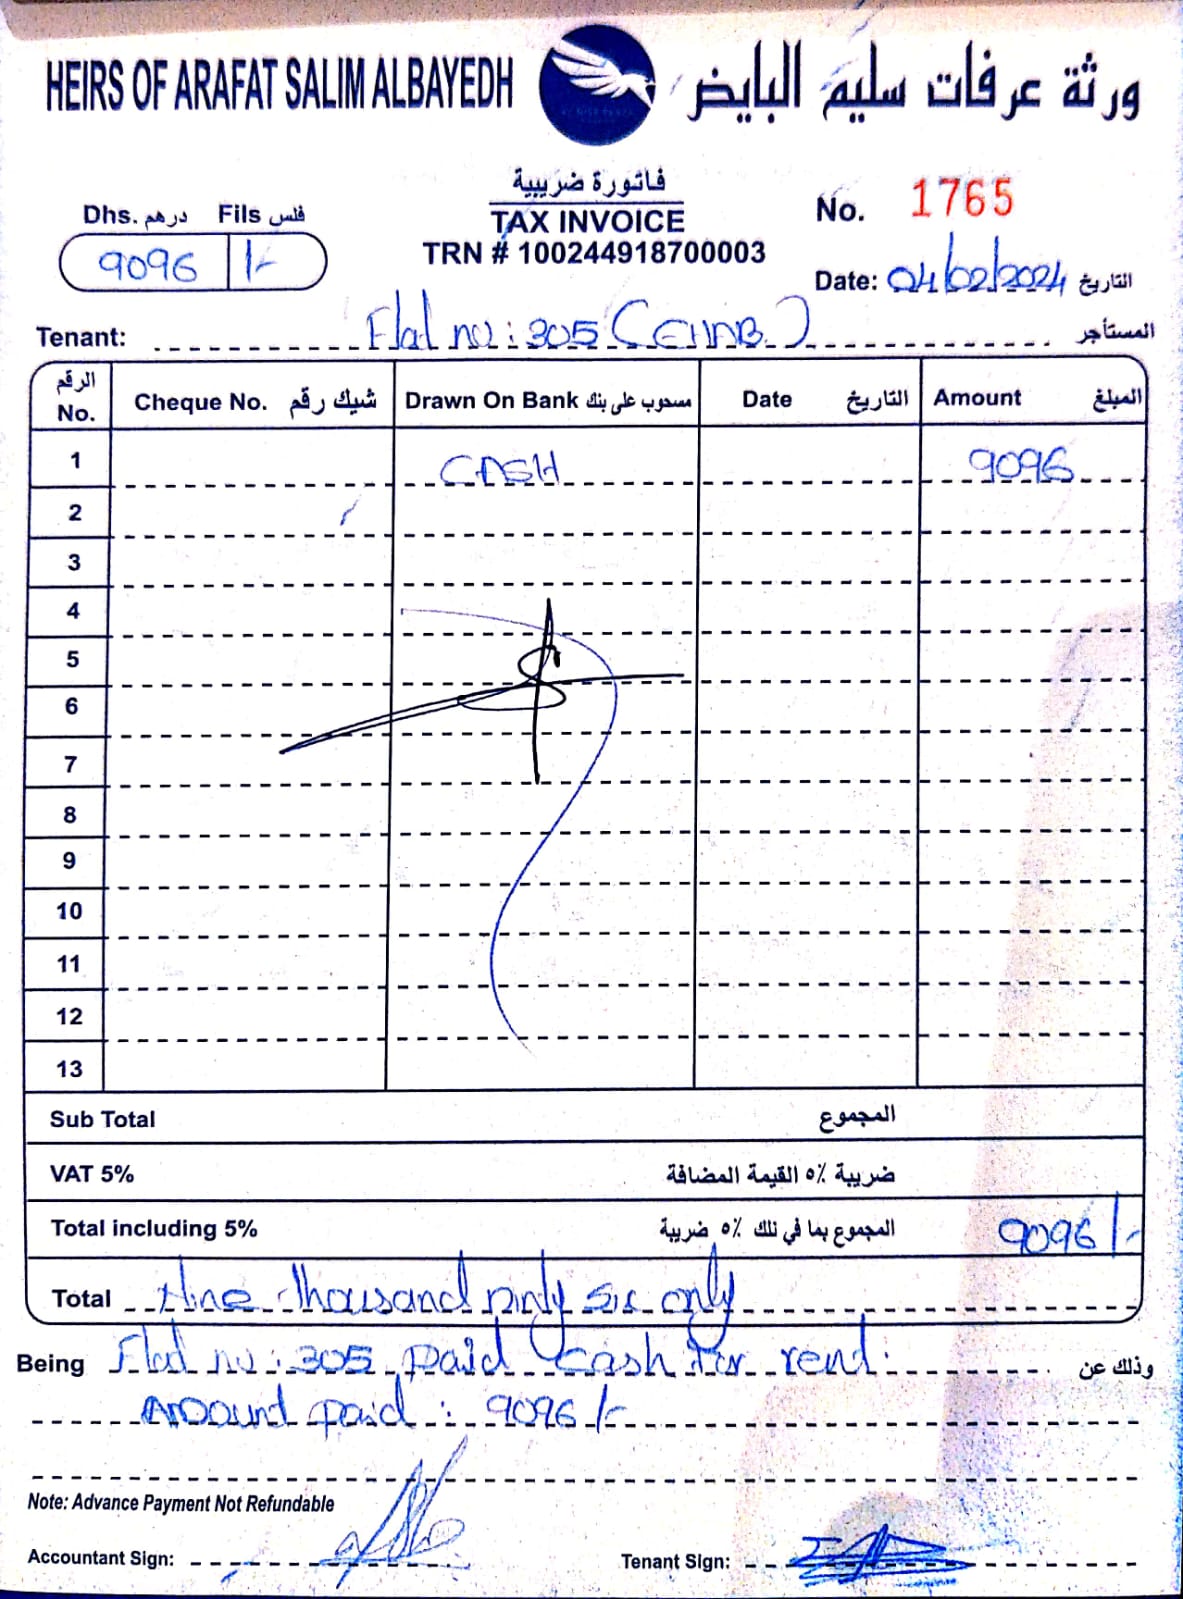 HEIRS OF ARAFAT SALIM ALBAYEDH ورثة عرفات سليم البايض
فاتورة ضريبية
TAX INVOICE
TRN # 100244918700003
Dhs. درهم Fils فلس
9096 /-
No. 1765
Date: 04/02/2024 التاريخ
Tenant: Flat no: 305 (EHAB) المستأجر
الرقم No. Cheque No. شيك رقم Drawn On Bank مسحوب على بنك Date التاريخ Amount المبلغ
1 CASH 9096
2
3
4
5
6
7
8
9
10
11
12
13
Sub Total المجموع
VAT 5% ضريبة ٥٪ القيمة المضافة
Total including 5% المجموع بما في ذلك ٥٪ ضريبة 9096/-
Total Nine thousand ninty six only
Being Flat no: 305 paid cash for rent. وذلك عن
Amount paid: 9096/-
Note: Advance Payment Not Refundable
Accountant Sign: Tenant Sign: